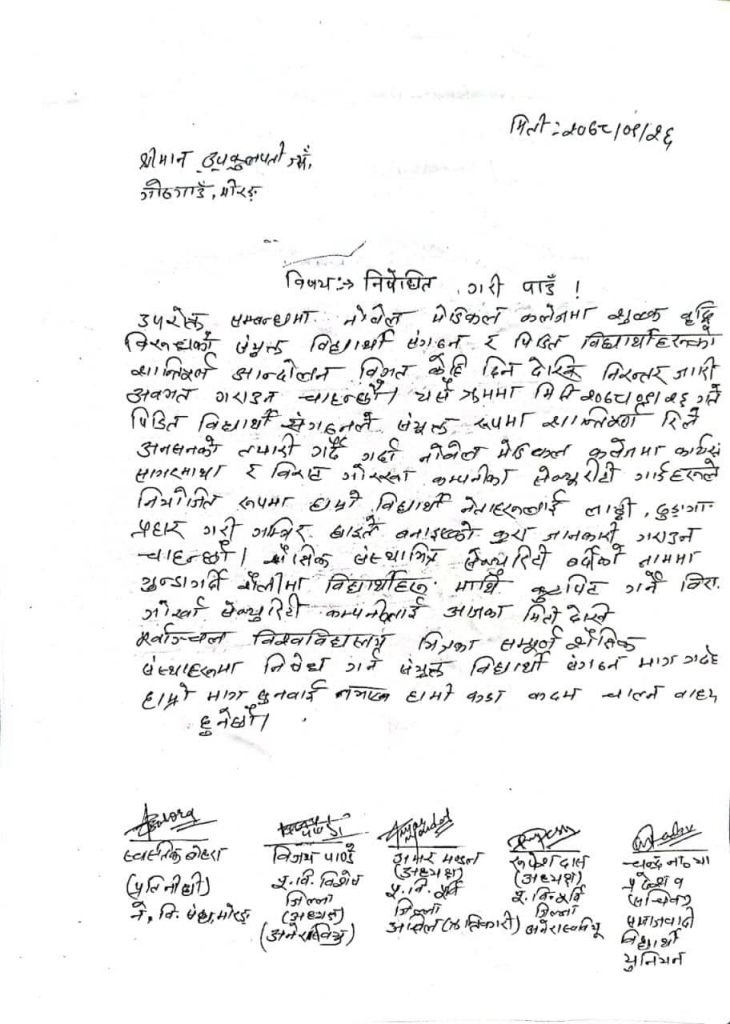 मिती :- २०७८/०९/२६
श्रीमान उपकुलपती ज्यू,
गोठगाउँ, मोरङ
विषय :→ निषेधित गरी पाउँ !
उपरोक्त सम्बन्धमा नोवेल मेडिकल कलेजमा शुल्क वृद्धि
विरुद्धको संयुक्त विद्यार्थी संगठन र पिडित विद्यार्थीहरुको
शान्तिपूर्ण आन्दोलन विगत केहि दिन देखि निरन्तर जारी
अवगत गराउन चाहन्छौं। यसै क्रममा मिति २०७८/०९/२६ गते
पिडित विद्यार्थी संगठनले संयुक्त रुपमा शान्तिपूर्ण रिले
अनसनको तयारी गर्दै गर्दा नोवेल मेडिकल कलेजमा कार्यरत
सागरमाथा र विराट गोरखा कम्पनीका सेक्युरीटी गार्डहरुले
नियोजित रुपमा हाम्रो विद्यार्थी नेताहरुलाई लाठ्ठी, ढुङ्गा
प्रहार गरी गम्भिर घाइते बनाइएको कुरा जानकारी गराउन
चाहन्छौं। शैक्षिक संस्थाभित्र सेक्युरिटी गार्डको नाममा
गुन्डागर्दी शैलीमा विद्यार्थीहरु माथि कुटपिट गर्ने विरा
गोर्खा सेक्युरिटी कम्पनीलाई आजका मिती देखि
पूर्वाञ्चल विश्वविद्यालय भित्रका सम्पूर्ण शैक्षिक
संस्थाहरुमा निषेध गर्न संयुक्त विद्यार्थी संगठन माग गर्दछ
हाम्रो माग सुनवाई नगरिए हामी कडा कदम चाल्न वाध्य
हुनेछौं।
स्वस्तिक बोहरा विजय पाण्डे अमर मण्डल रुपेश दास चन्द्र
(प्रतिनीधी) पू. वि. विशेष (अध्यक्ष) (अध्यक्ष) प्रदेश
ने. वि. संघ, मोरङ जिल्ला पू. वि. पूर्व पू. वि. पूर्व (सचिव)
(अध्यक्ष) जिल्ला जिल्ला समाजवादी
(अनेरास्ववियु) अखिल (क्रान्तिकारी) अनेरास्ववियू विद्यार्थी
युनियन